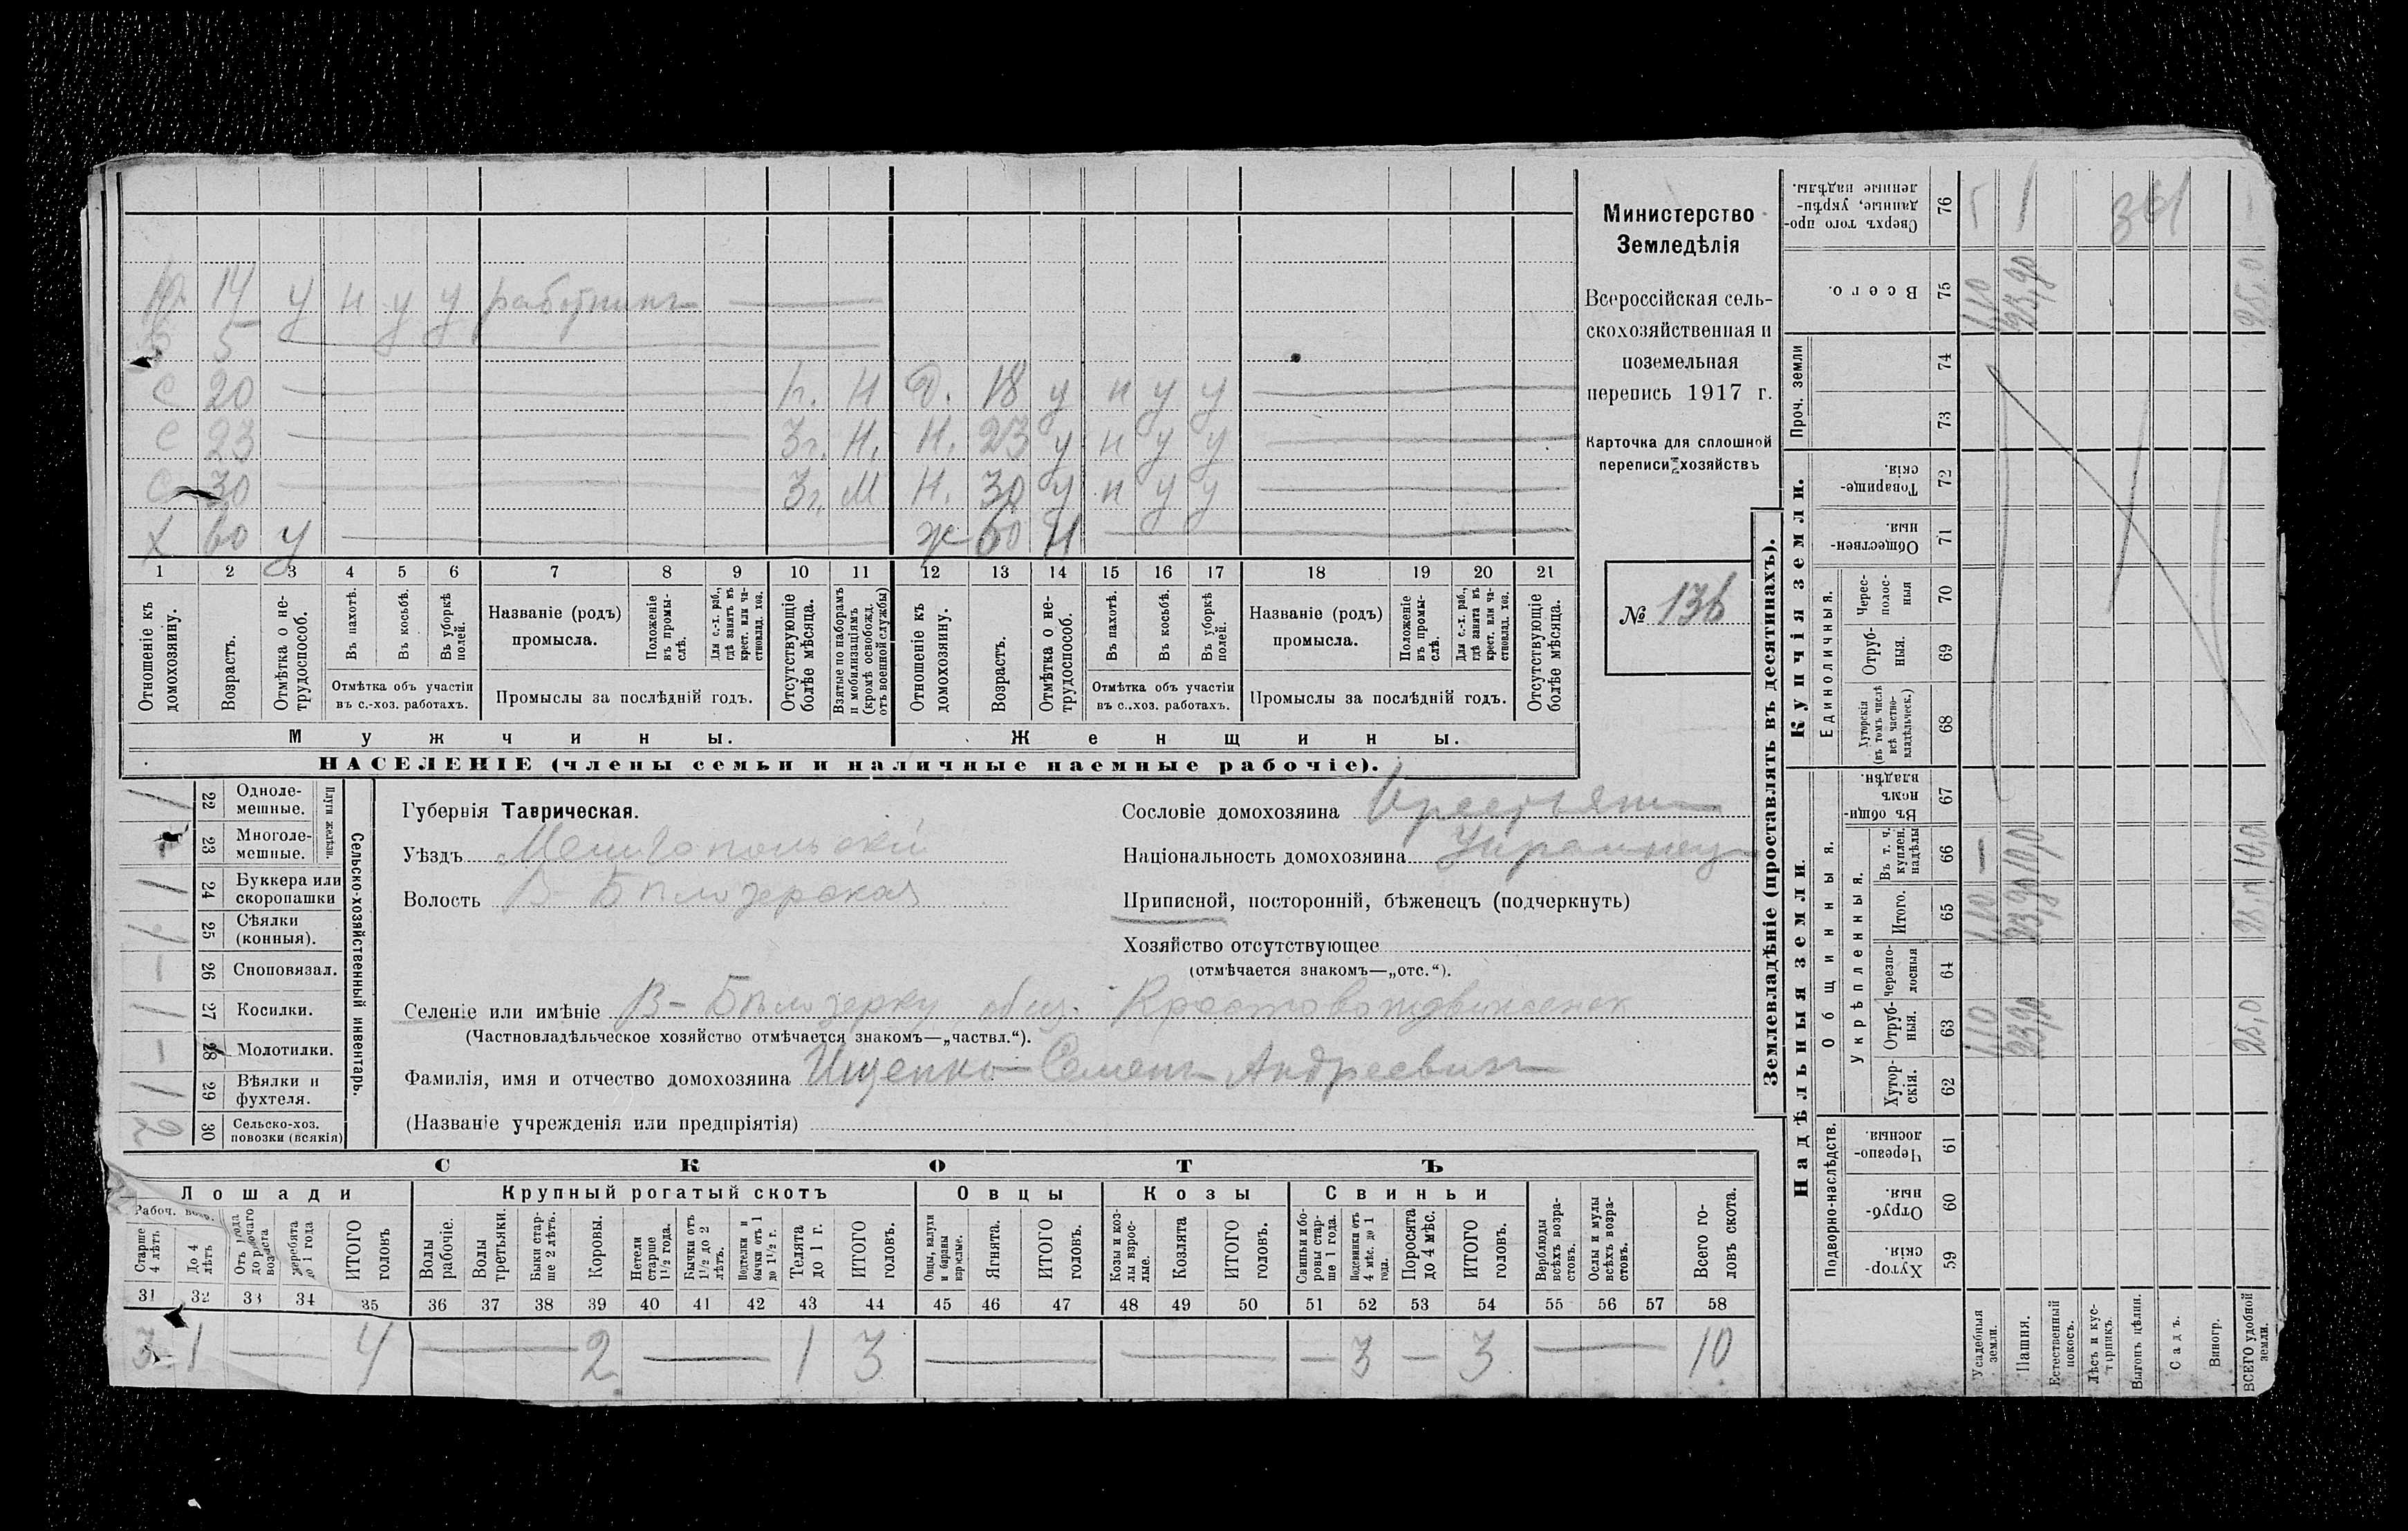 Министерство
Земледѣлія
Всероссійская сель-
скохозяйственная и
поземельная
перепись 1917 г.
Карточка для сплошной
переписи хозяйствъ
№ 136
14 у н у у работникъ
5
С 20 Н Д. 18 у н у у
С 23 3г. Н. Н. 23 у н у у
С 30 3г. М Н. 30 у н у у
Х 60 у Ж 60 Н
1 2 3 4 5 6 7 8 9 10 11 12 13 14 15 16 17 18 19 20 21
Отношеніе къ домохозяину.
Возрастъ.
Отмѣтка о не-трудоспособ.
Въ пахотѣ.
Въ косьбѣ.
Въ уборкѣ полей.
Отмѣтка объ участіи въ с.-хоз. работахъ.
Названіе (родъ) промысла.
Положеніе въ промы-слѣ.
Для с.-х. раб., гдѣ занятъ въ крест. или ча-стновлад. хоз.
Промыслы за послѣдній годъ.
Отсутствующіе болѣе мѣсяца.
Взятые по наборамъ и мобилизаціямъ (кромѣ освобожд. отъ военной службы)
Отношеніе къ домохозяину.
Возрастъ.
Отмѣтка о не-трудоспособ.
Въ пахотѣ.
Въ косьбѣ.
Въ уборкѣ полей.
Отмѣтка объ участіи въ с..хоз. работахъ.
Названіе (родъ) промысла.
Положеніе въ промы-слѣ.
Для с.-х. раб., гдѣ занята въ крест. или ча-стновлад. хоз.
Промыслы за послѣдній годъ.
Отсутствующіе болѣе мѣсяца.
Мужчины. Женщины.
НАСЕЛЕНІЕ (члены семьи и наличные наемные рабочіе).
Сельско-хозяйственный инвентарь.
Плуги желѣзн.
1 22 Одноле-мешные.
23 Многоле-мешные.
1 24 Буккера или скоропашки
1 25 Сѣялки (конныя).
— 26 Сноповязал.
1 27 Косилки.
— 28 Молотилки.
1 29 Вѣялки и фухтеля.
2 30 Сельско-хоз. повозки (всякія)
Губернія Таврическая.
Уѣздъ Мелитопольскій
Волость В-Бѣлозерская
Сословіе домохозяина Крестьянинъ
Національность домохозяина Украинецъ
Приписной, посторонній, бѣженецъ (подчеркнуть)
Хозяйство отсутствующее
(отмѣчается знакомъ—„отс.“).
Селеніе или имѣніе В-Бѣлозерку общ. Крестовоздвиженск
(Частновладѣльческое хозяйство отмѣчается знакомъ—„частвл.“).
Фамилія, имя и отчество домохозяина Ищенко Семенъ Андреевичъ
(Названіе учрежденія или предпріятія)
СКОТЪ
Лошади Крупный рогатый скотъ Овцы Козы Свиньи
Рабоч.
Старше 4 лѣтъ
До 4 лѣтъ
Отъ 1 года до рабочаго возраста
Жеребята до 1 года
ИТОГО головъ
Волы рабочіе.
Волы третьяки.
Быки стар-ше 2 лѣтъ.
Коровы.
Нетели старше 1 1/2 года.
Бычки отъ 1 1/2 до 2 лѣтъ.
Подтелки и бычки отъ 1 до 1 1/2 г.
Телята до 1 г.
ИТОГО головъ.
Овцы, валухи и бараны взрослые.
Ягнята.
ИТОГО головъ.
Козы и коз-лы взрос-лые.
Козлята
ИТОГО головъ.
Свиньи и бо-ровы стар-ше 1 года.
Подсвинки отъ 4 мѣс. до 1 года.
Поросята до 4 мѣс.
ИТОГО головъ.
Верблюды всѣхъ возра-стовъ.
Ослы и мулы всѣхъ возра-стовъ.
Всего го-ловъ скота.
31 32 33 34 35 36 37 38 39 40 41 42 43 44 45 46 47 48 49 50 51 52 53 54 55 56 57 58
3 1 — 4 — 2 — 1 3 — — — 3 — 3 — 10
Землевладѣніе (проставлять въ десятинахъ).
Купчія земли.
Надѣльныя земли
Сверхъ того про-данные, укрѣп-ленные надѣлы. 76
Всего. 75
Проч. земли 74 73
Товарище-скія. 72
Обществен-ныя. 71
Единоличныя.
Черес-полос-ныя 70
Отруб-ныя. 69
Хуторскія (въ томъ числѣ всѣ частно-владѣльческ.) 68
Общинныя.
Въ общин-номъ владѣн. 67
Укрѣпленныя.
Въ т. ч. куплен. надѣлы 66
Итого. 65
Черезпо-лосныя 64
Отруб-ныя. 63
Хутор-скія. 62
Подворно-наслѣдств.
Черезпо-лосныя 61
Отруб-ныя. 60
Хутор-скія. 59
Усадебныя земли.
Пашня.
Естественный покосъ.
Лѣсъ и кус-тарникъ.
Выгонъ цѣлин.
Садъ.
Виногр.
ВСЕГО удобной земли.
1,10 23,90 25,0
10,0 10,0
1,10 23,90
1,10 23,90 25,0
361